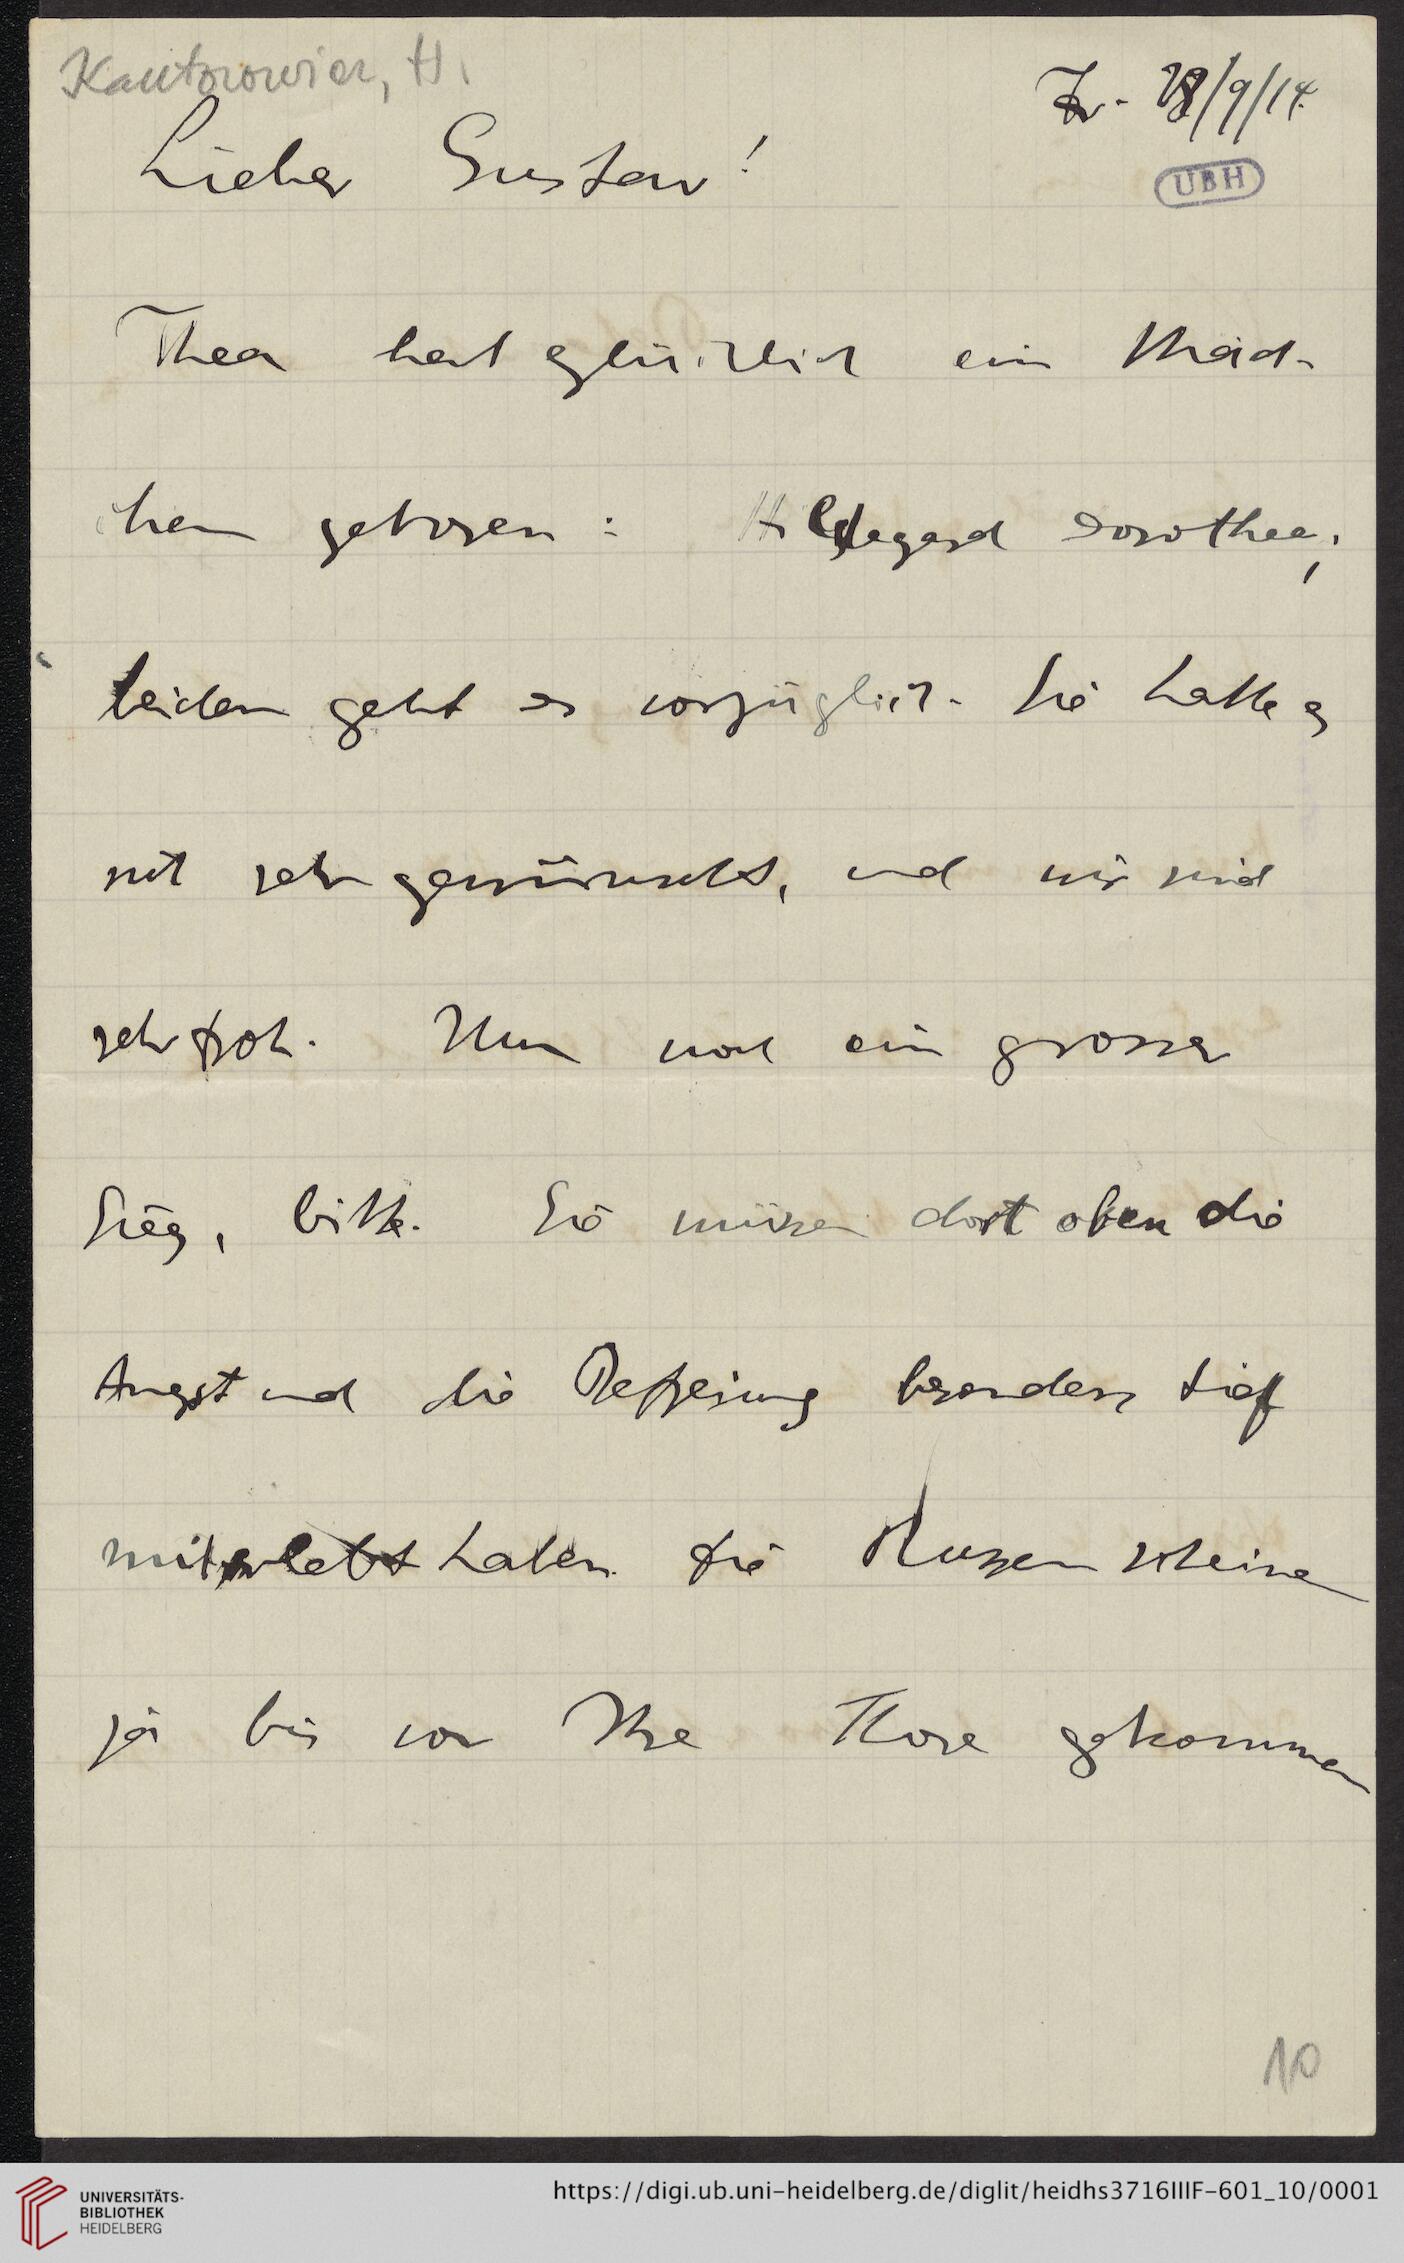 Kantorowicz, H.
Fr. 18/9/14.
Lieber Gustav!
UBH
Thea hat glücklich ein Mäd-
chen geboren: Hildegard Dorothea;
beiden geht es vorzüglich. Sie hatte es
sich sehr gewünscht, und wir sind
sehr froh. Nun noch ein grosser
Sieg, bitte. Sie müssen dort oben die
Angst und die Befreiung besonders tief
miterlebt haben. Die Russen scheinen
ja bis vor Ihre Thore gekommen
10
UNIVERSITÄTS-
BIBLIOTHEK
HEIDELBERG
https://digi.ub.uni-heidelberg.de/diglit/heidhs3716IIIF-601_10/0001